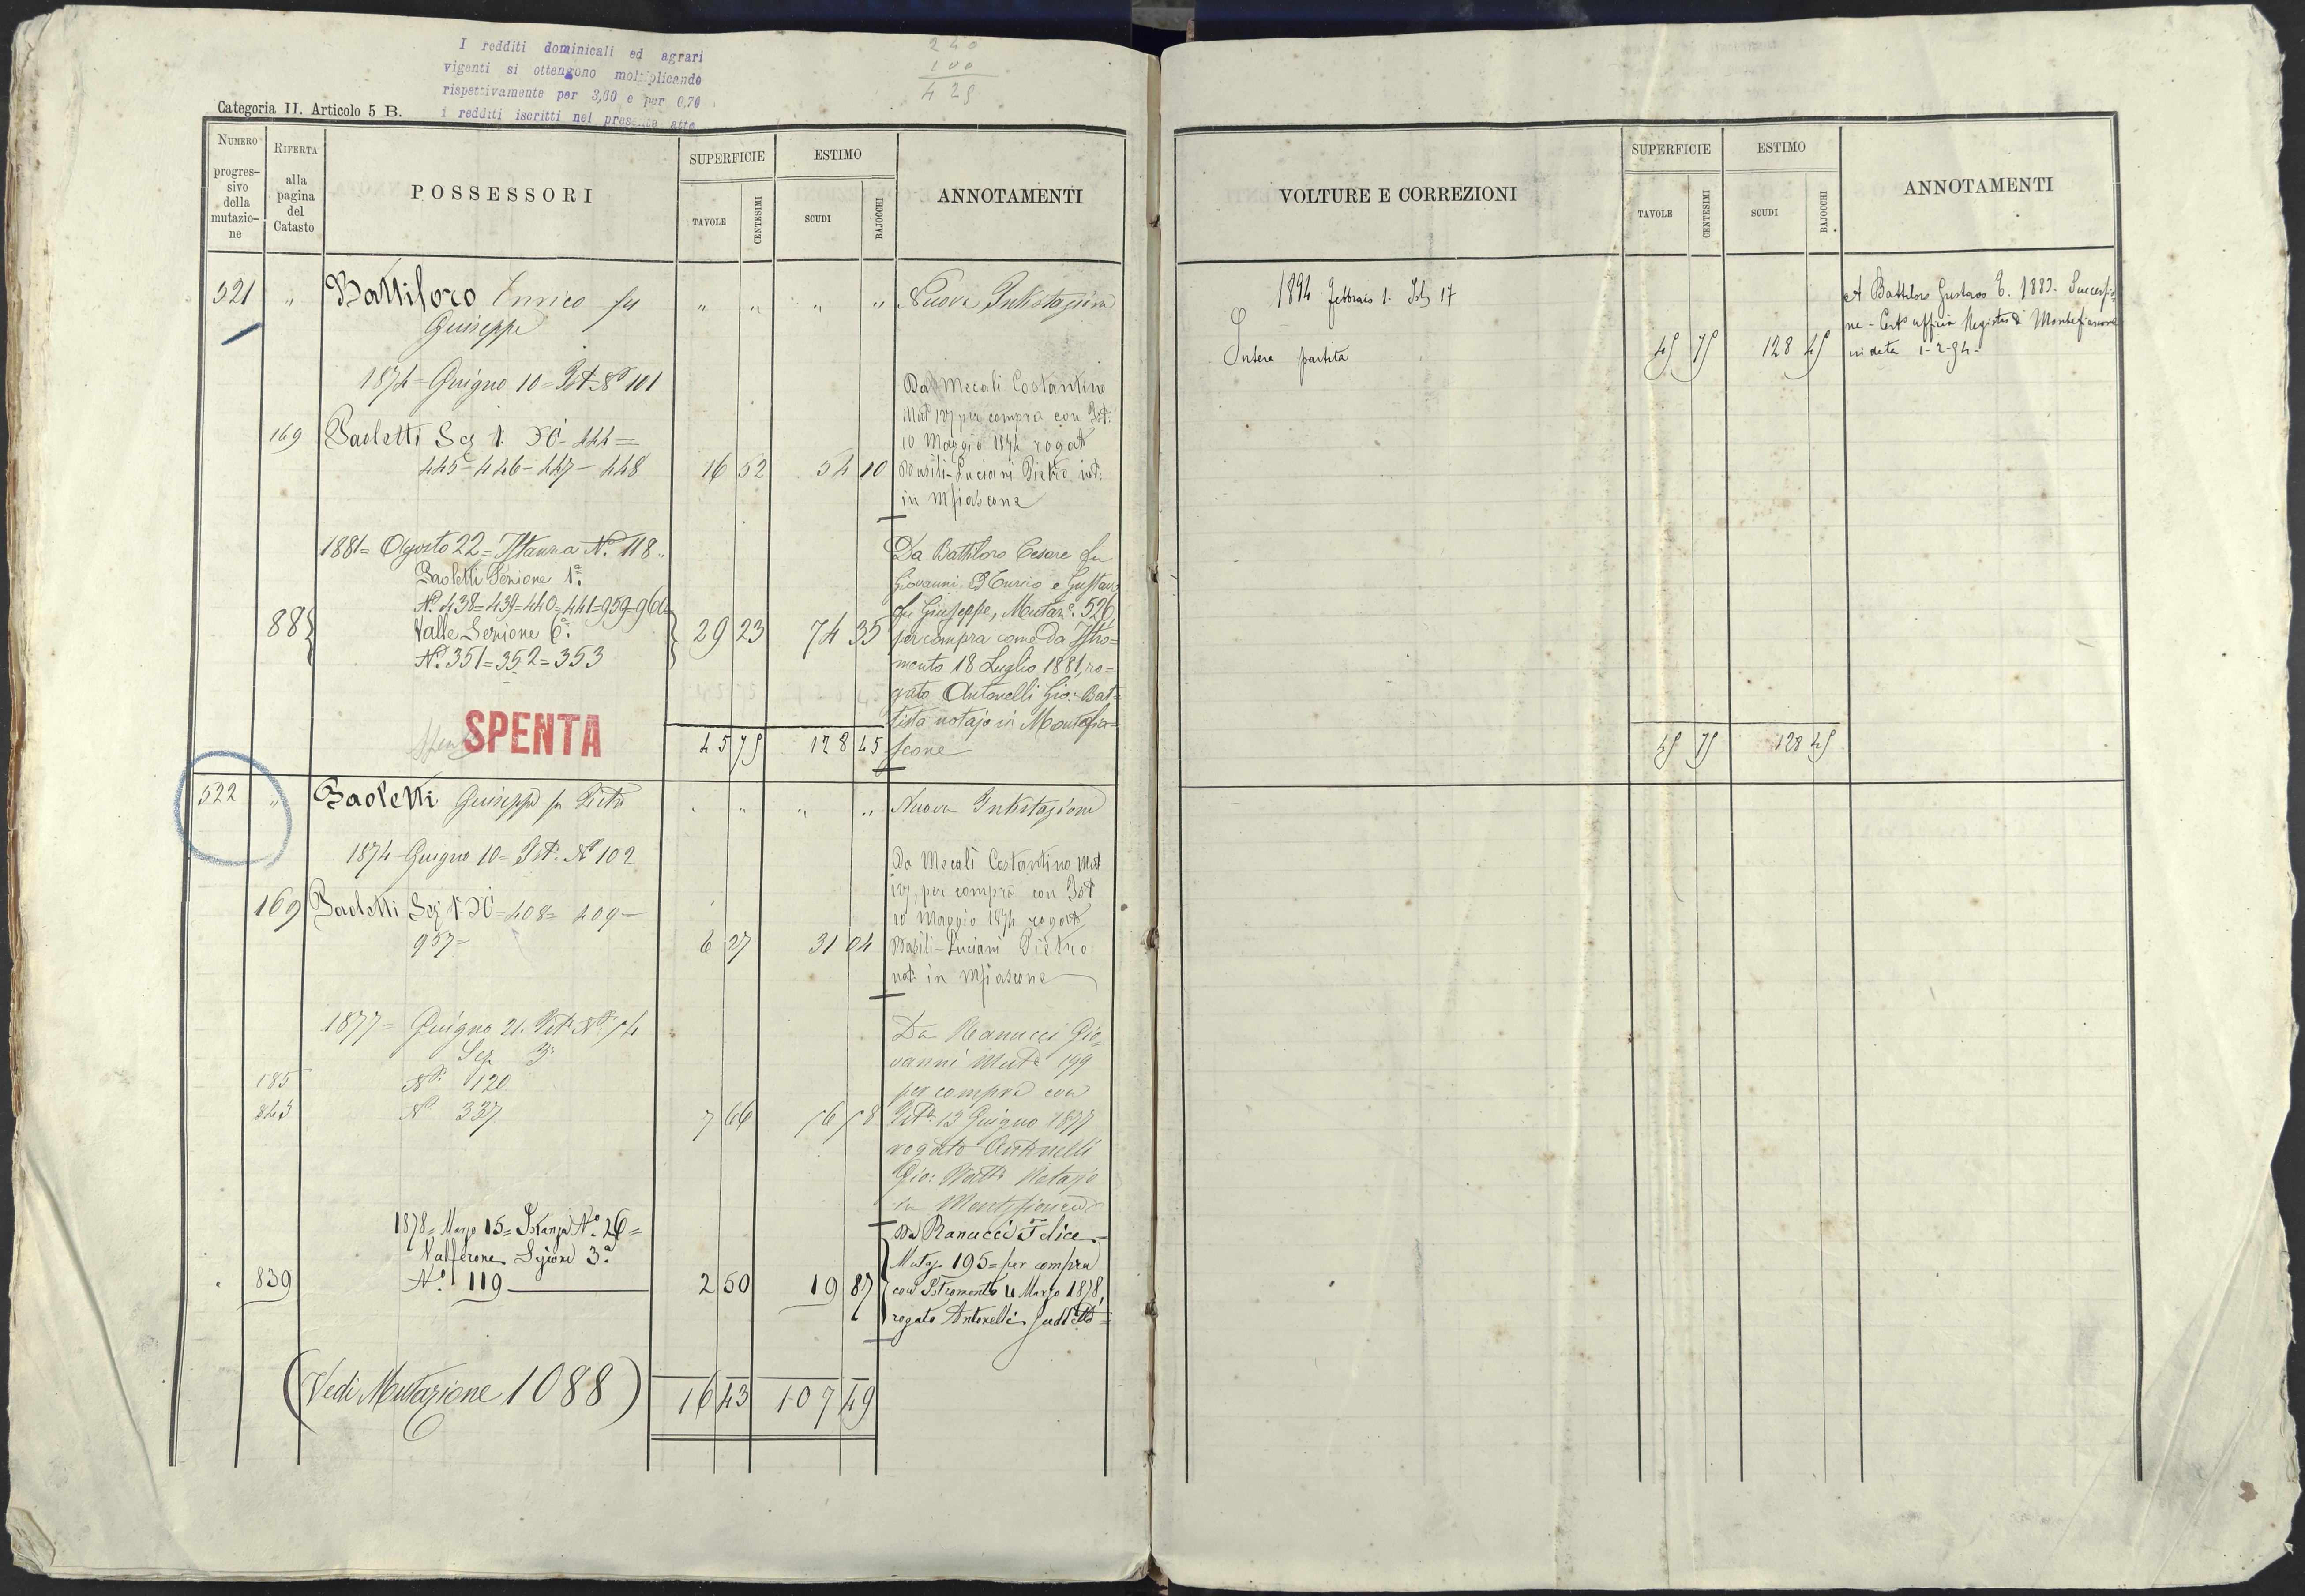 I redditi dominicali ed agrari
vigenti si ottengono moltiplicando
rispettivamente per 3,60 e per 0,70
i redditi iscritti nel presente atto
240
100
429
Categoria II. Articolo 5 B.
NUMERO progres-sivo della mutazio-ne
RIFERTA alla pagina del Catasto
POSSESSORI
SUPERFICIE
TAVOLE
CENTESIMI
ESTIMO
SCUDI
BAJOCCHI
ANNOTAMENTI
521 " Battiloro Enrico fu " " " " Nuova Intestazione
Giuseppe
1874 = Giugno 10 = Ist. No 101
Da Mecali Costantino
per compra con Ist:
10 Maggio 1874 rogato
169 Paoletti Sez 1: No 444 =
445 - 446 - 447 - 448 16 52 54 10
Basili-Luciani Pietro not:
in Mfiascone
1881 = Agosto 22 = Istanza No. 118
Paoletti Sezione 1a.
No. 438=439=440=441=959=960
88 Valle Sezione 6a. 29 23 74 35
No. 351=352=353
Da Battiloro Cesare fu
Giovanni, Enrico e Gustavo
fu Giuseppe, Mutaze. 526,
per compra come da Istro=
mento 18 Luglio 1881, ro=
gato Antonelli Gio: Bat=
tista notajo in Montefia=
scone
SPENTA
45 75 128 45
522 " Paoletti Giuseppe fu Pietro " " " " Nuova Intestazione
1874 Giugno 10 = Ist. No 102
Da Mecali Costantino Mut
per compra con Ist
10 Maggio 1874 rogato
169 Paoletti Sez 1: No 408 = 409 =
957 = 6 27 31 04
Basili-Luciani Pietro
not: in Mfiascone
1877 = Giugno 21. Ist. No. 54
Sez 3a
185 No. 120
843 No 337 7 66 56 58
Da Ranucci Gio=
vanni Muta 199
per compra con
Isto. 13 Giugno 1877
rogato Antonelli
Gio: Batta Notajo
in Montefiascone
1878 = Marzo 15 = Istanza No. 26 =
Sezione 3a.
839 No. 119 2 50 19 87
Da Ranucci Felice
195 = per compra
con Istromento 4 Marzo 1878,
rogato Antonelli suddetto =
(Vedi Mutazione 1088) 16 43 107 49
VOLTURE E CORREZIONI
SUPERFICIE
TAVOLE
CENTESIMI
ESTIMO
SCUDI
BAJOCCHI
ANNOTAMENTI
1894 Febbraio 1. Ist 17
Intera partita 45 75 128 45
A Battiloro Gustavo 1883. Successio
ne - Certo ufficio Registro di Montefiascone
in data 1-2-94 -
45 75 128 45